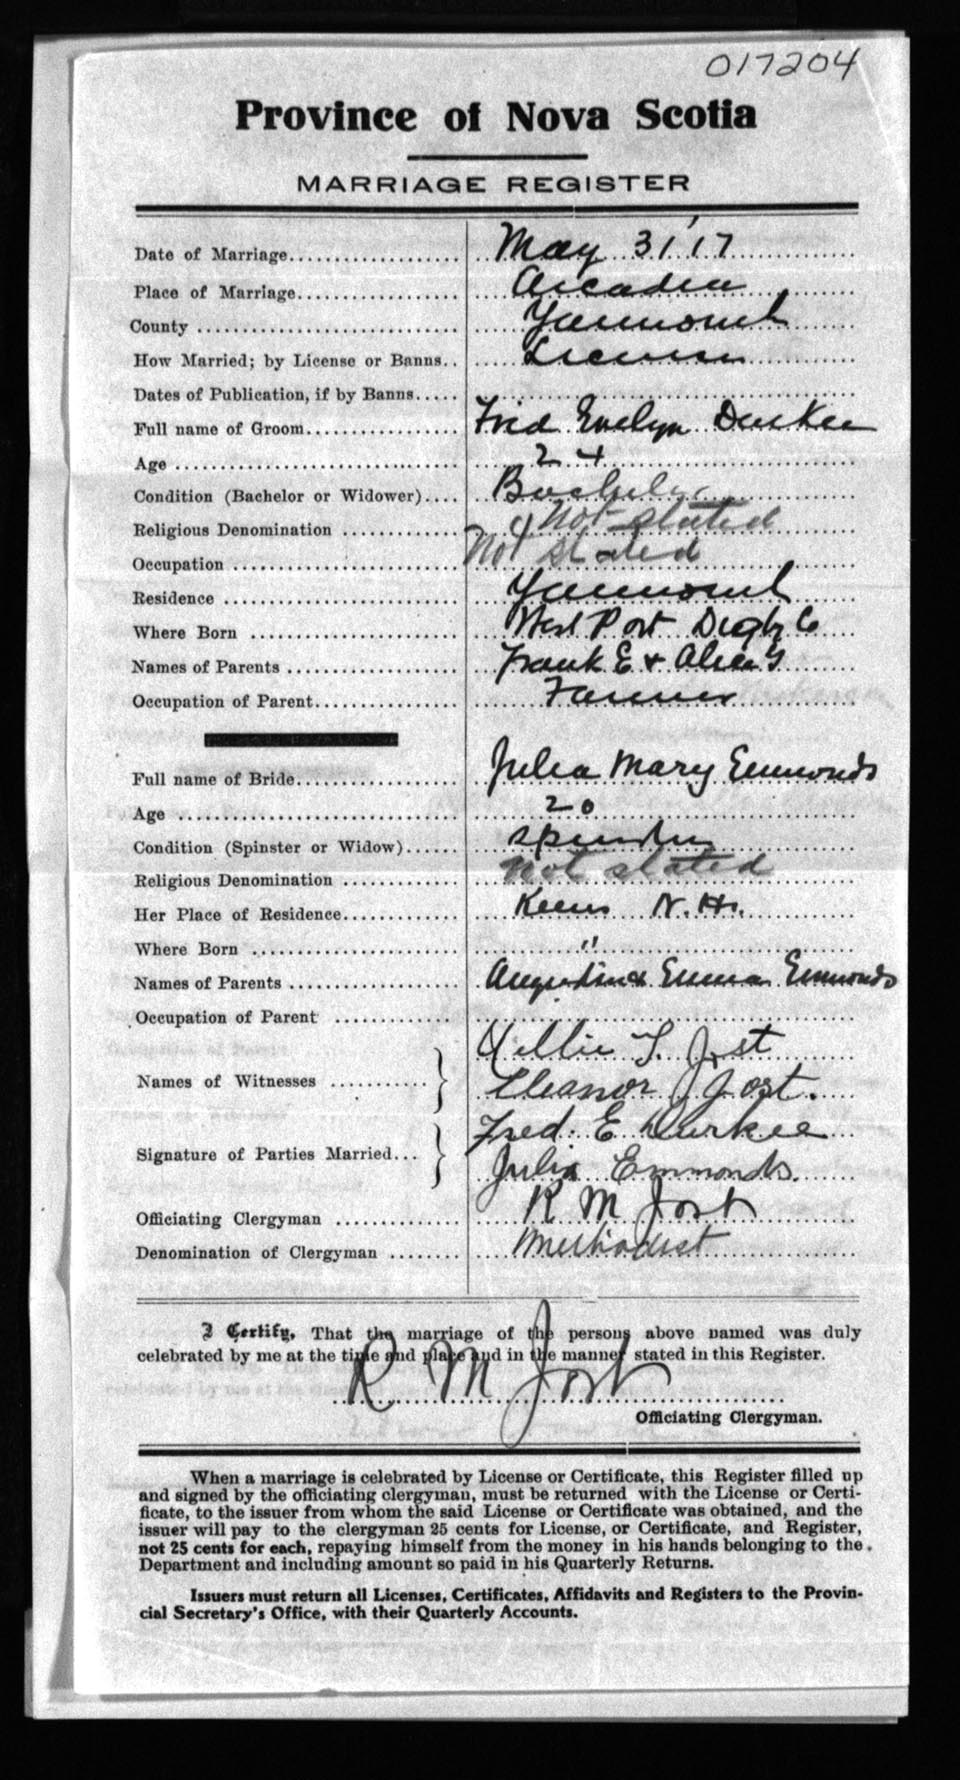 017204
Province of Nova Scotia
MARRIAGE REGISTER
Date of Marriage................... May 31, '17
Place of Marriage.................. Arcadia
County ............................. Yarmouth
How Married; by License or Banns.. License
Dates of Publication, if by Banns.....
Full name of Groom................. Fred Evelyn Durkee
Age ................................ 24
Condition (Bachelor or Widower).... Bachelor
Religious Denomination ............. Not stated
Occupation ......................... Not stated
Residence .......................... Yarmouth
Where Born ......................... West Port Digby Co
Names of Parents ................... Frank E & Alice G
Occupation of Parent................ Farmer
Full name of Bride.................. Julia Mary Emmonds
Age ................................ 20
Condition (Spinster or Widow)...... Spinster
Religious Denomination ............. Not stated
Her Place of Residence............. Keene N. H.
Where Born ......................... "
Names of Parents ................... Augustin & Emma Emmonds
Occupation of Parent ..............
Names of Witnesses ........... } Nellie T. Jost
Eleanor J Jost.
Signature of Parties Married... } Fred. E Durkee
Julia Emmonds.
Officiating Clergyman .............. R M Jost
Denomination of Clergyman ........ Methodist
I Certify, That the marriage of the persons above named was duly
celebrated by me at the time and place and in the manner stated in this Register.
R M Jost
Officiating Clergyman.
When a marriage is celebrated by License or Certificate, this Register filled up
and signed by the officiating clergyman, must be returned with the License or Certi-
ficate, to the issuer from whom the said License or Certificate was obtained, and the
issuer will pay to the clergyman 25 cents for License, or Certificate, and Register,
not 25 cents for each, repaying himself from the money in his hands belonging to the
Department and including amount so paid in his Quarterly Returns.
Issuers must return all Licenses, Certificates, Affidavits and Registers to the Provin-
cial Secretary's Office, with their Quarterly Accounts.